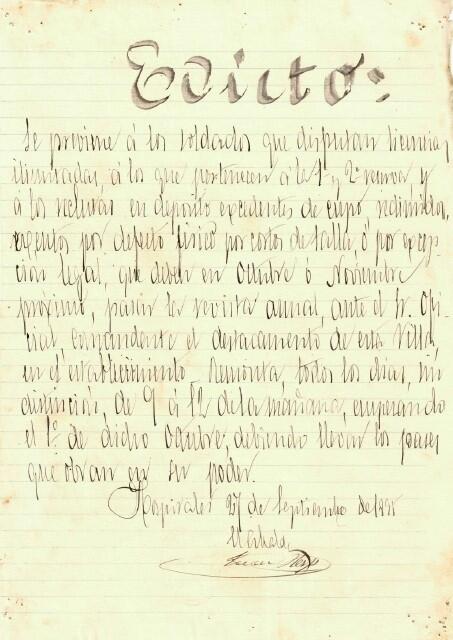 Edicto:
Se previene á los soldados que disfrutan licencias
ilimitadas, á los que pertenecen á la 1ª y 2ª reserva y
á los reclutas en depósito excedentes de cupo, redimidos,
exentos por defecto fisico por cortos de talla, ó por excep-
cion legal, que deben en Octubre ó Noviembre
próximo, pasar la revista anual, ante el Sr. Ofi-
cial, comandante el destacamento de esta Villa,
en el establecimiento Remonta, todos los dias, sin
distinción, de 9 á 12 de la mañana, empezando
el 1º de dicho Octubre, debiendo llevar los pases
que obran en su poder.
27 de Septiembre de
El Alcalde,